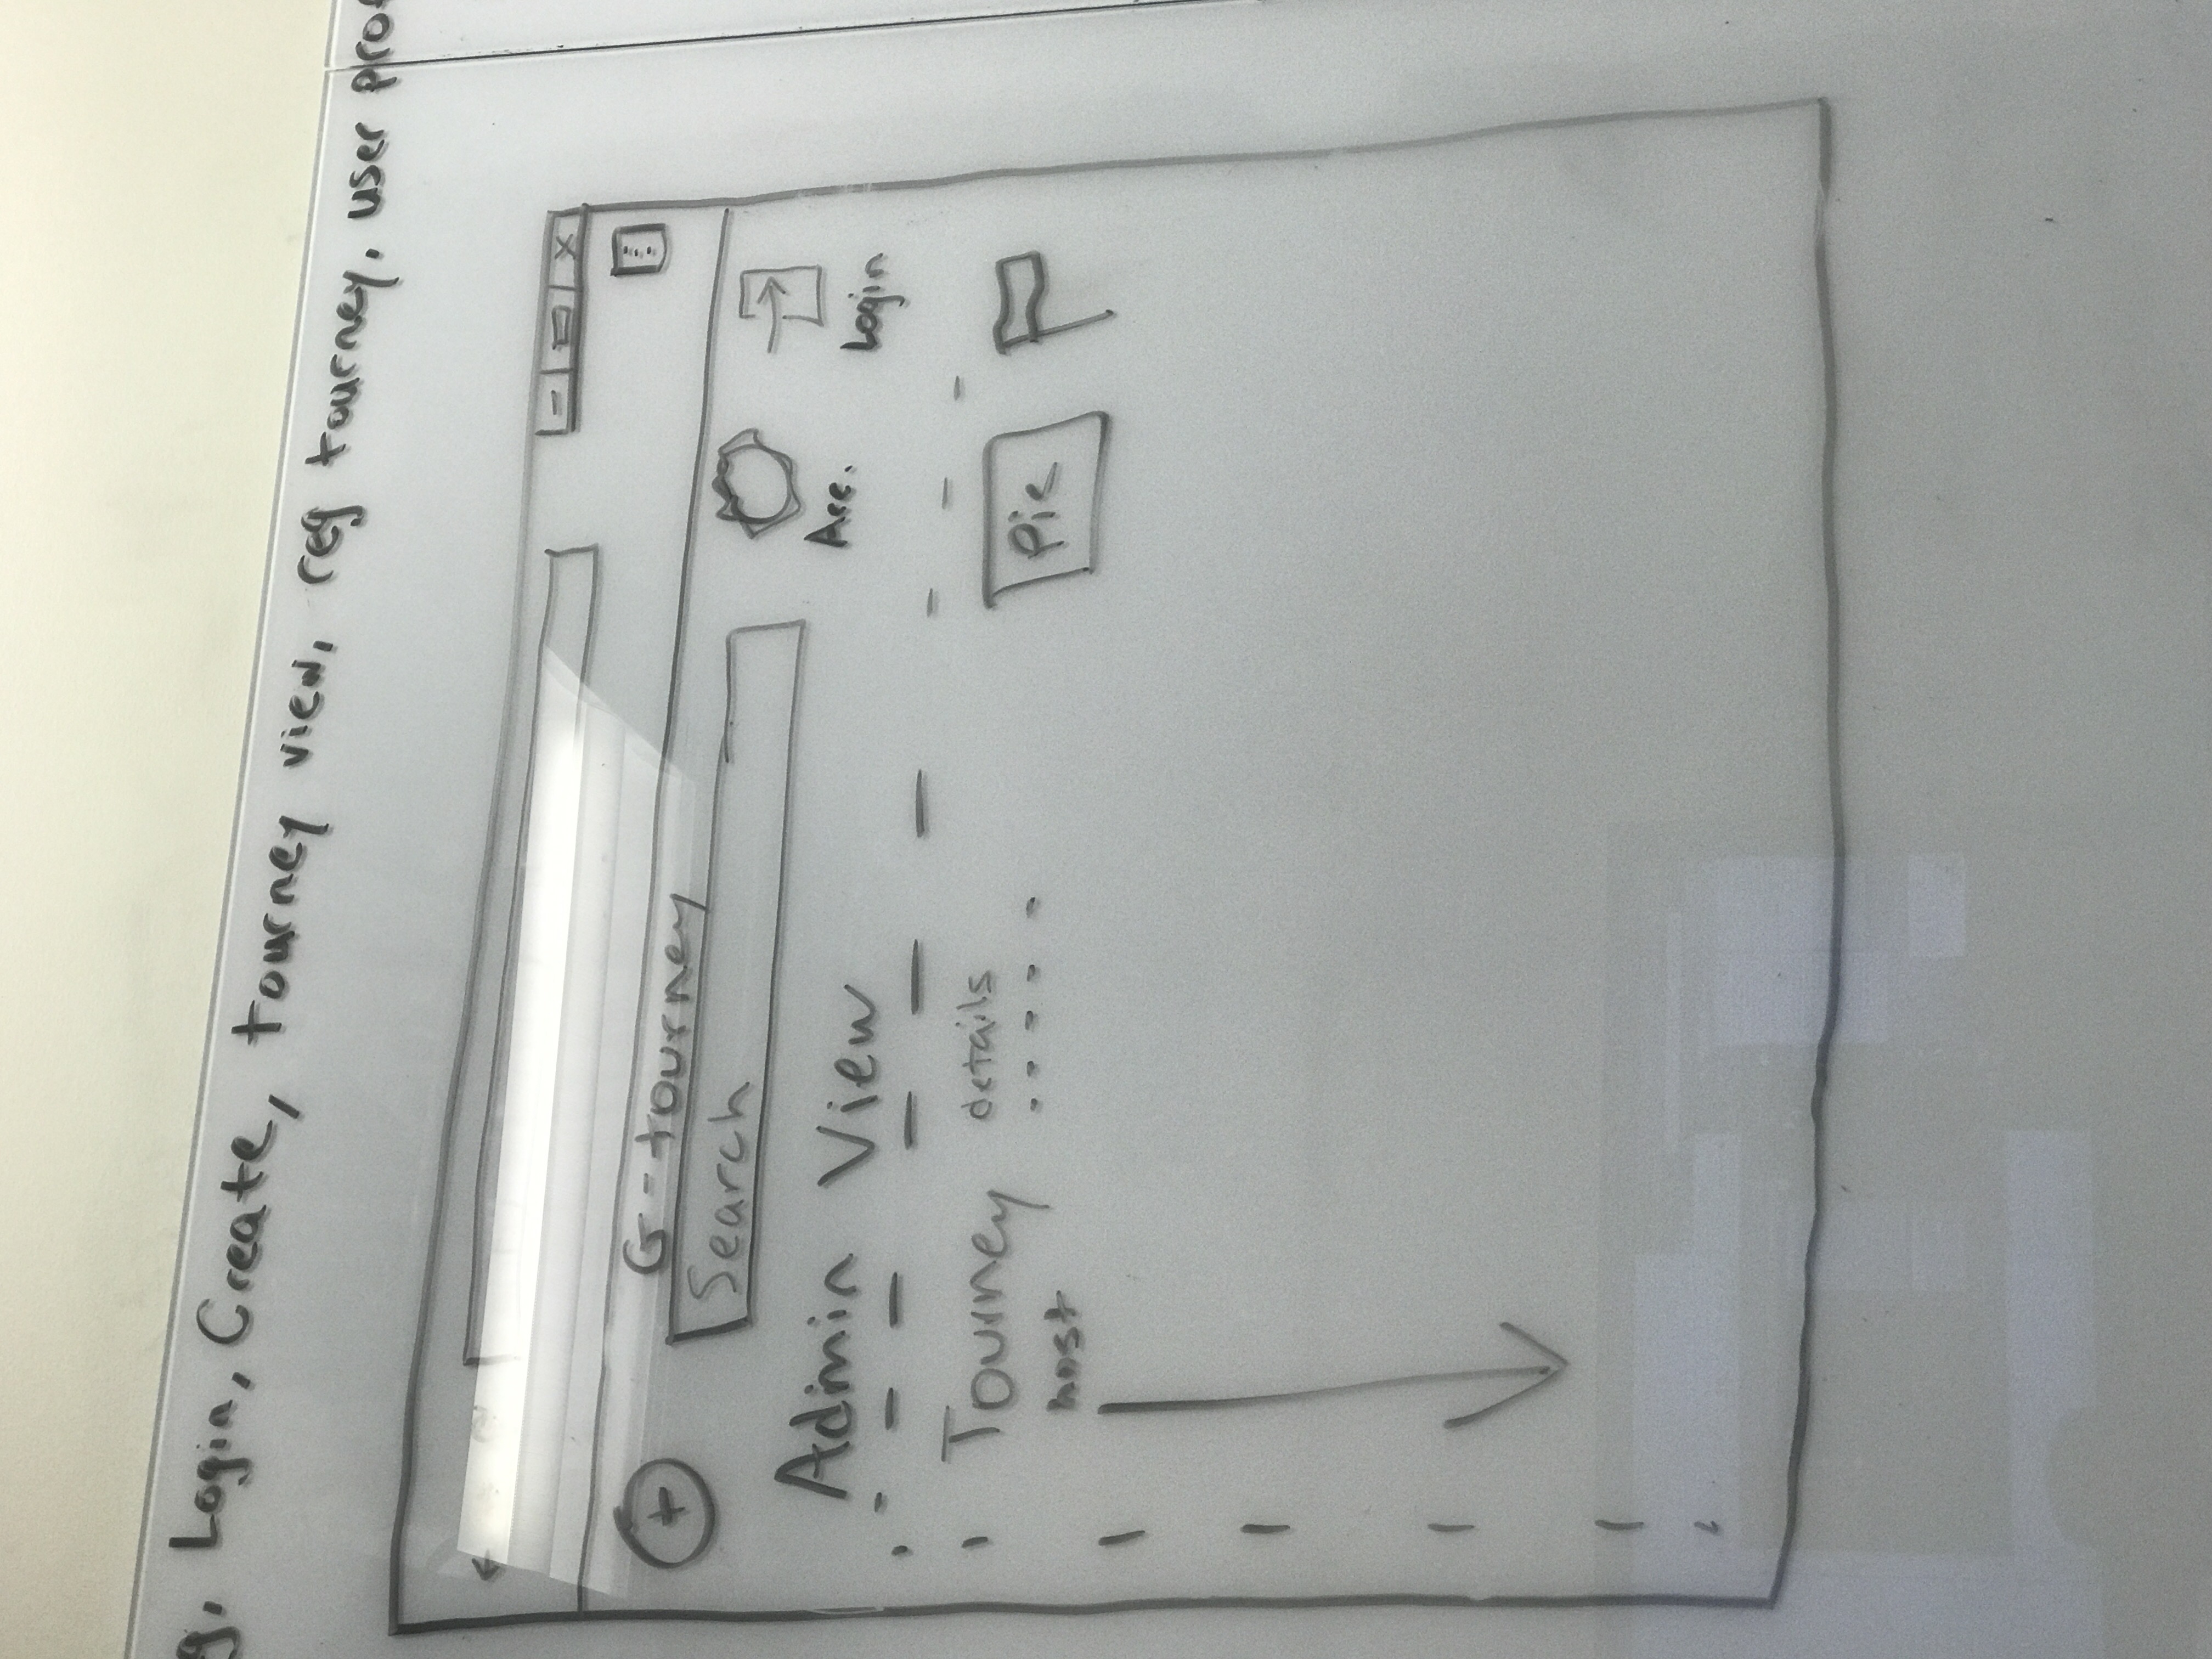 g, Login, Create, tourney view, reg tourney, user prof
G-tourney
Search
Acc.
Login
Admin View
Tourney details
host
Pic